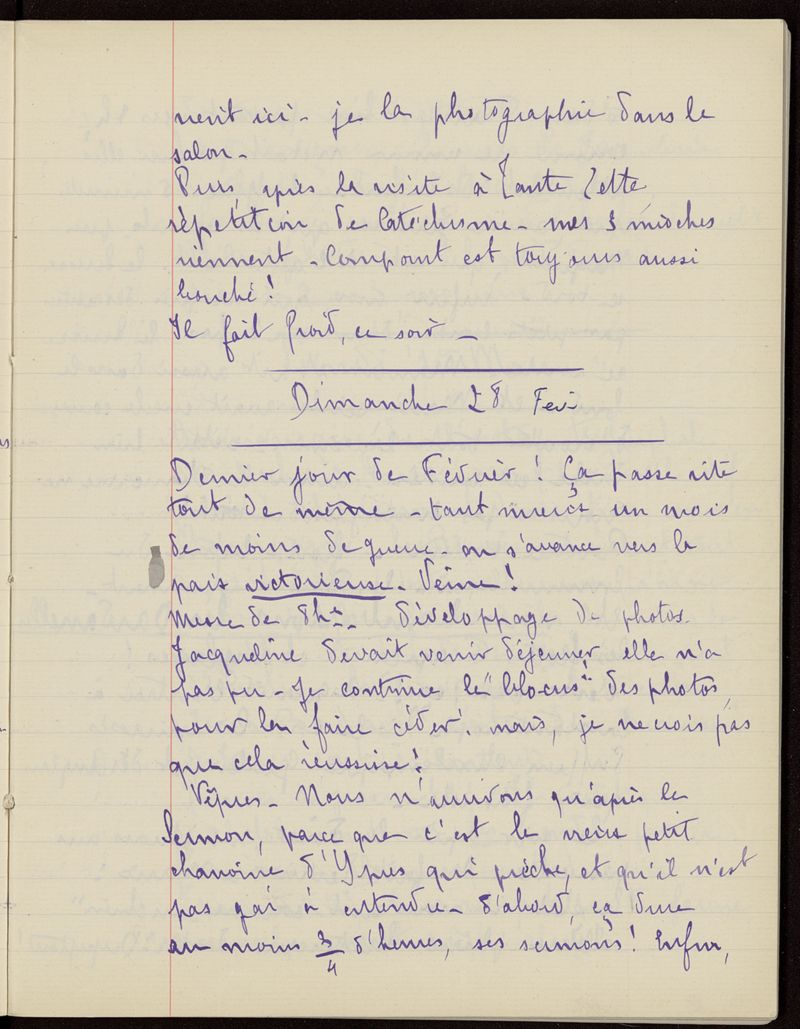 nent ici - je la photographie dans le
salon -
Puis, après la visite à Tante Zette,
répétition de Catéchisme - mes 3 mioches
viennent - Compont est toujours aussi
bouché !
Il fait froid, ce soir -
Dimanche 28 Fev
Dernier jour de Février ! Ça passe vite
tout de même - tant mieux un mois
de moins de guerre - on s'avance vers la
paix victorieuse - Veine !
Messe de 8h - développage de photos.
Jacqueline devait venir déjeuner, elle n'a
pas pu - Je continue le "blocus" des photos,
pour la faire céder ! mais, je ne crois pas
que cela réussisse !
Vêpres - Nous n'arrivons qu'après le
Sermon, parce que c'est le vieux petit
chanoine d'Ypres qui prêche, et qu'il n'est
pas gai à entendre - d'abord, ça dure
au moins 3/4 d'heures, ses sermons ! Enfin,